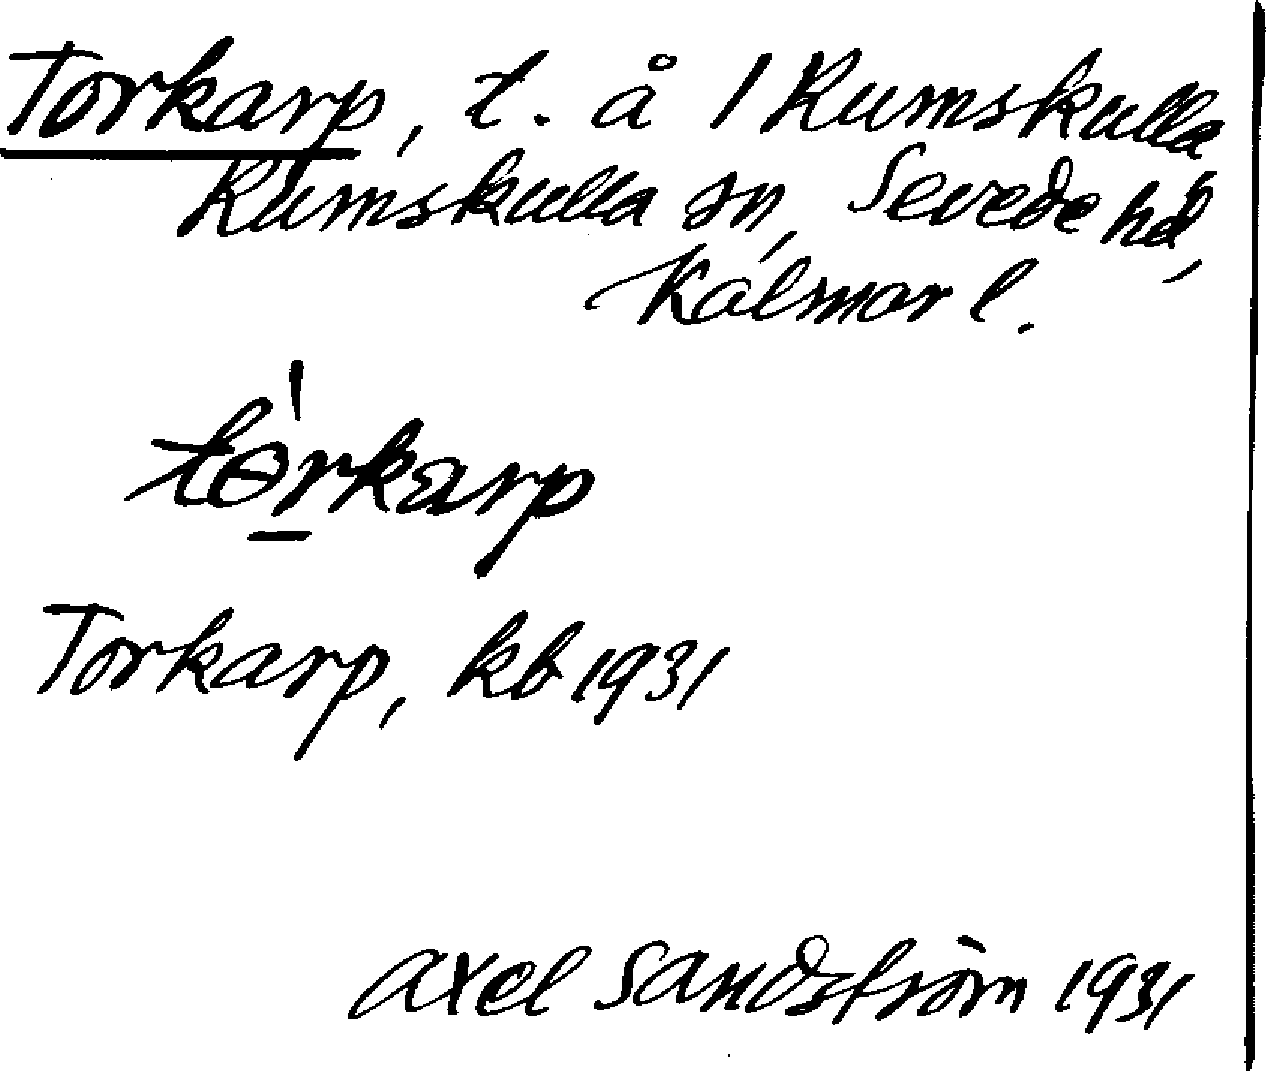 Torkarp, t. å 1 Rumskulla
Rumskulla sn, Sevede hd,
Kalmar l.
tɵ́rkarp
Torkarp, kb 1931
Axel Sandström 1931